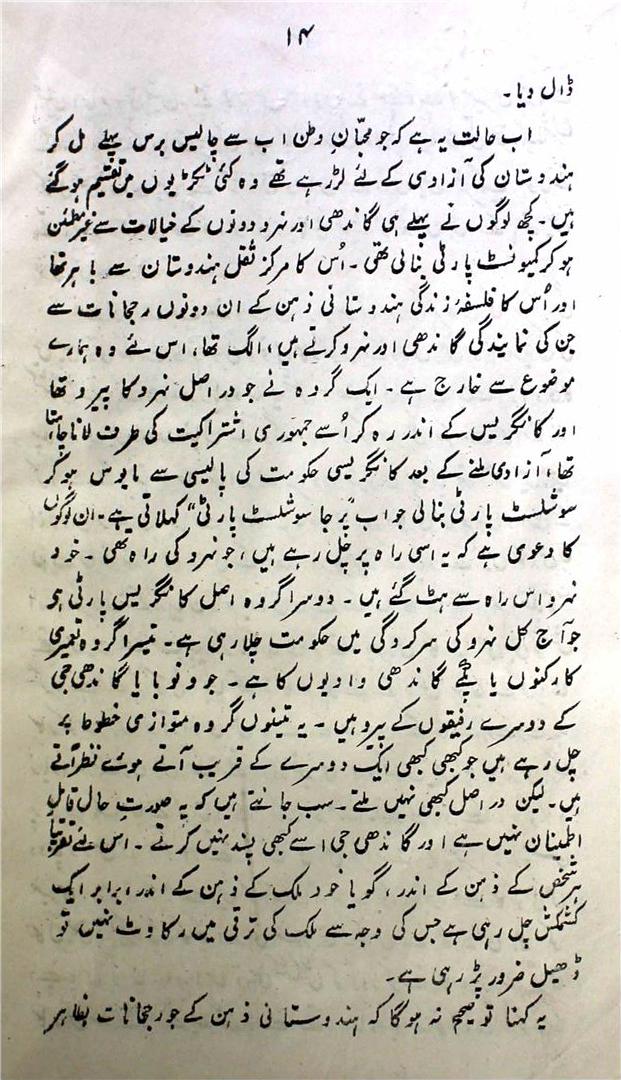 ۱۴
ڈال دیا۔
اب حالت یہ ہے کہ جو محبّانِ وطن اب سے چالیس برس پہلے مل کر
ہندوستان کی آزادی کے لئے لڑرہے تھے وہ کئی ٹکڑیوں میں تقسیم ہوگئے
ہیں۔ کچھ لوگوں نے پہلے ہی گاندھی اور نہرو دونوں کے خیالات سے غیر مطمئن
ہوکر کمیونسٹ پارٹی بنالی تھی۔ اُس کا مرکز ثقل ہندوستان سے باہر تھا
اور اُس کا فلسفۂ زندگی ہندوستانی ذہن کے ان دونوں رجحانات سے
جن کی نمایندگی گاندھی اور نہرو کرتے ہیں، الگ تھا، اس لئے وہ ہمارے
موضوع سے خارج ہے۔ ایک گروہ نے جو در اصل نہرو کا پیرو تھا
اور کانگریس کے اندر رہ کر اُسے جمہوری اشتراکیت کی طرف لانا چاہتا
تھا، آزادی ملنے کے بعد کانگریسی حکومت کی پالیسی سے مایوس ہوکر
سوشلسٹ پارٹی بنالی جو اب ”پرجا سوشلسٹ پارٹی“ کہلاتی ہے۔ ان لوگوں
کا دعوی ہے کہ یہ اسی راہ پر چل رہے ہیں، جو نہرو کی راہ تھی۔ خود
نہرو اس راہ سے ہٹ گئے ہیں۔ دوسرا گروہ اصل کانگریس پارٹی ہی
جو آج کل نہرو کی سرکردگی میں حکومت چلارہی ہے۔ تیسرا گروہ تعمیری
کارکنوں یا پکّے گاندھی وادیوں کا ہے۔ جو ونوبا یا گاندھی جی
کے دوسرے رفیقوں کے پیرو ہیں۔ یہ تینوں گروہ متوازی خطوط پر
چل رہے ہیں جو کبھی کبھی ایک دوسرے کے قریب آتے ہوئے نظر آتے
ہیں۔ لیکن در اصل کبھی نہیں ملتے۔ سب جانتے ہیں کہ یہ صورتِ حال قابلِ
اطمینان نہیں ہے اور گاندھی جی اسے کبھی پسند نہیں کرتے۔ اس لئے تقریباً
ہر شخص کے ذہن کے اندر، گویا خود ملک کے ذہن کے اندر، برابر ایک
کشمکش چل رہی ہے جس کی وجہ سے ملک کی ترقی میں رکاوٹ نہیں تو
ڈھیل ضرور پڑ رہی ہے۔
یہ کہنا تو صحیح نہ ہوگا کہ ہندوستانی ذہن کے جو رجحانات بظاہر